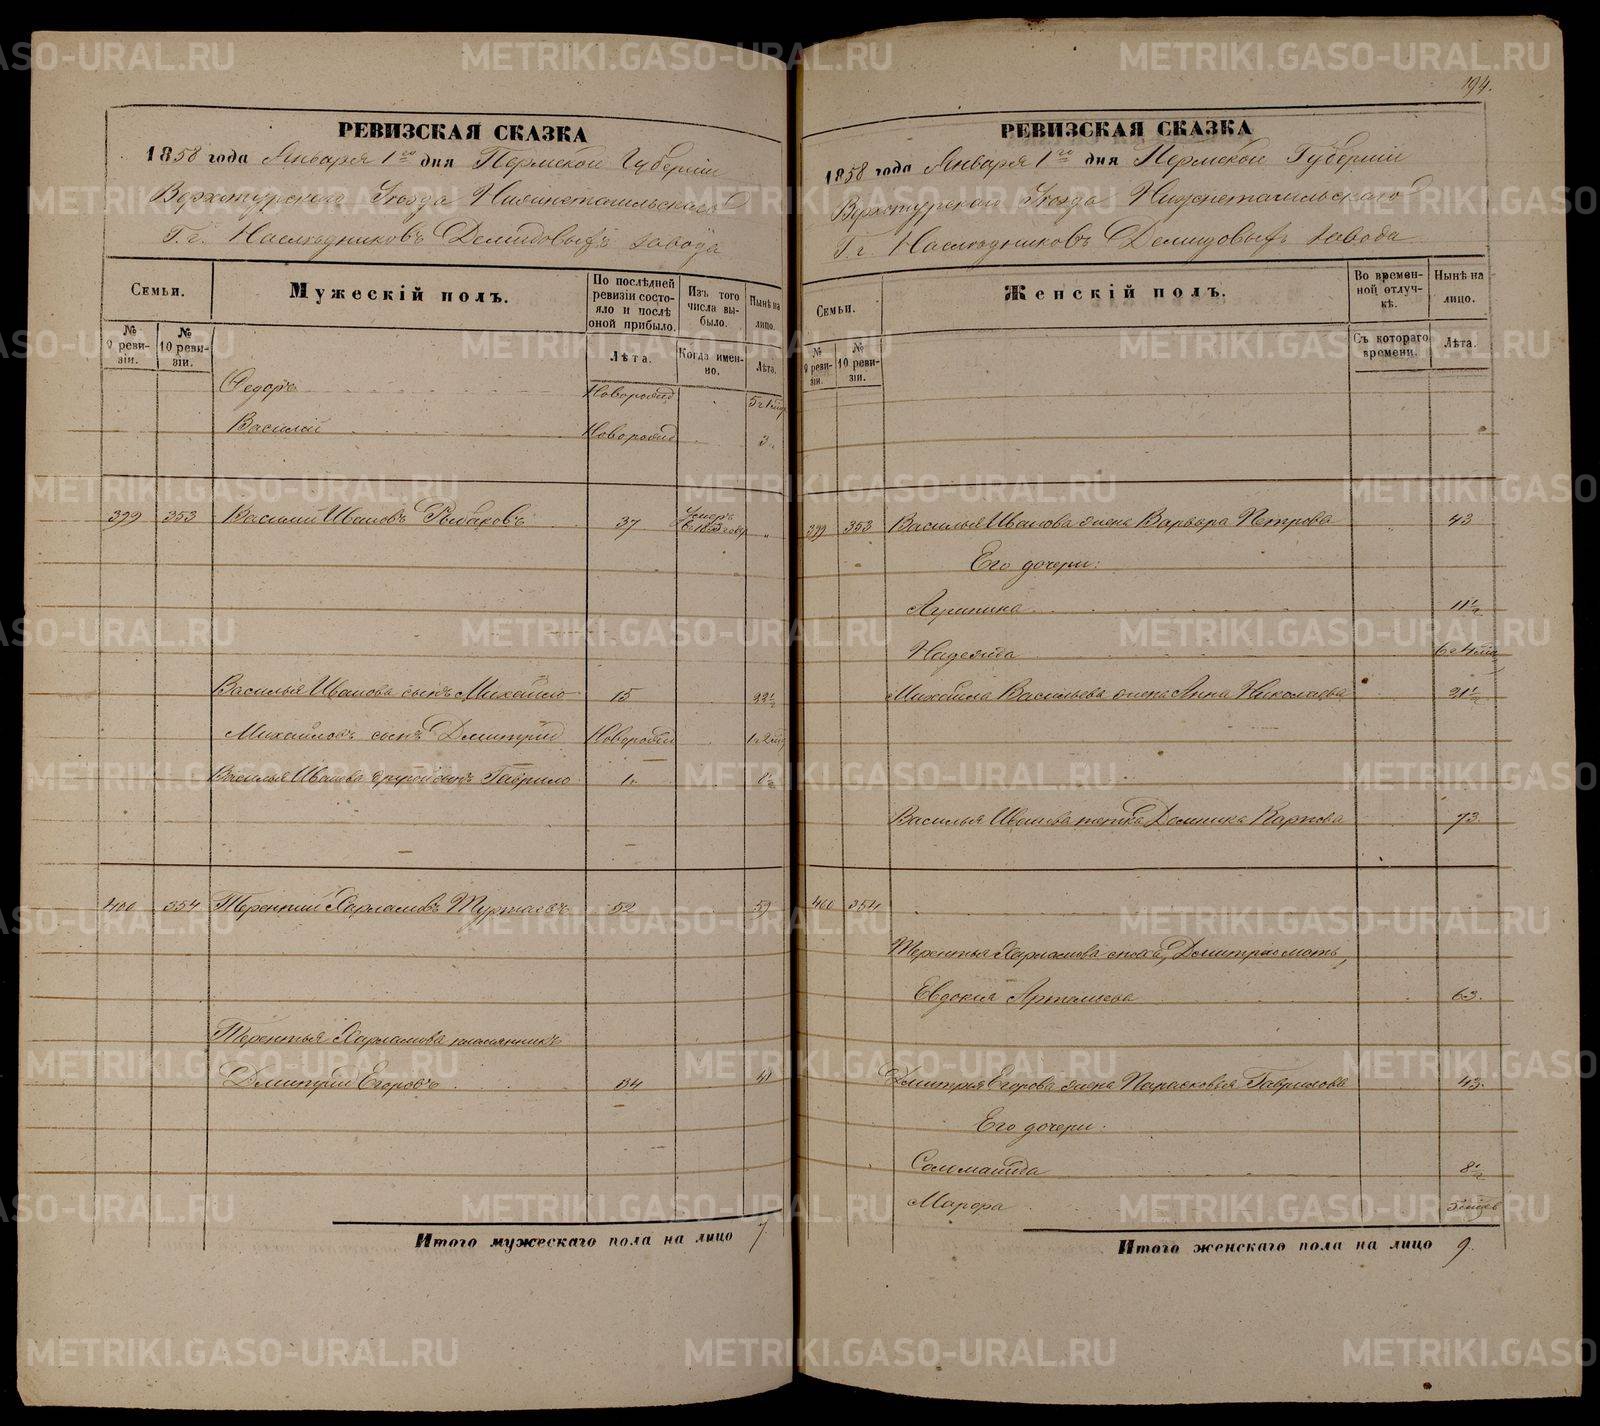 194.
РЕВИЗСКАЯ СКАЗКА
1858 года Января 1го дня Пермской Губернии
Верхотурского Уезда Нижнетагильскаго
Г.г. Наследниковъ Демидовыхъ завода
Семьи.
Мужескій полъ.
По послѣдней ревизіи состояло и послѣ оной прибыло.
Изъ того числа выбыло.
Нынѣ на лицо.
№ 9 ревизіи.
№ 10 ревизіи.
Лѣта.
Когда именно.
Лѣта.
Федоръ Новорожд
Василий Новорожд 3.
399 353 Василий Ивановъ Рыбаковъ 37 Умеръ
Василья Иванова сынъ Михайло 15 22½
Михайловъ сынъ Дмитрий Новорожд
Василья Иванова другой сынъ Гаврило 1.
400 354 Терентий Харламовъ 52 59
Терентья Харламова племянникъ
Дмитрий Егоровъ 34 41
Итого мужескаго пола на лицо 7.
РЕВИЗСКАЯ СКАЗКА
1858 года Января 1го дня Пермской Губернии
Верхотурского Уезда Нижнетагильскаго
Г.г. Наследниковъ Демидовыхъ завода
Семьи.
Женскій полъ.
Во временной отлучкѣ.
Нынѣ на лицо.
№ 9 ревизіи.
№ 10 ревизіи.
Съ котораго времени.
Лѣта.
399 353 Василья Иванова жена Варвара Петрова 43
Его дочери:
Агрипина 11½
Надежда
Михайла Васильева жена Анна Николаева 21½
Василья Иванова тетка Домника Карпова 73.
400 354
Терентья Харламова сноха, Дмитрию мать,
Евдокия Артемьева 63.
Дмитрия Егорова жена Парасковья Гаврилова 43.
Его дочери:
8½
Марфа
Итого женскаго пола на лицо 9.
METRIKI.GASO-URAL.RU